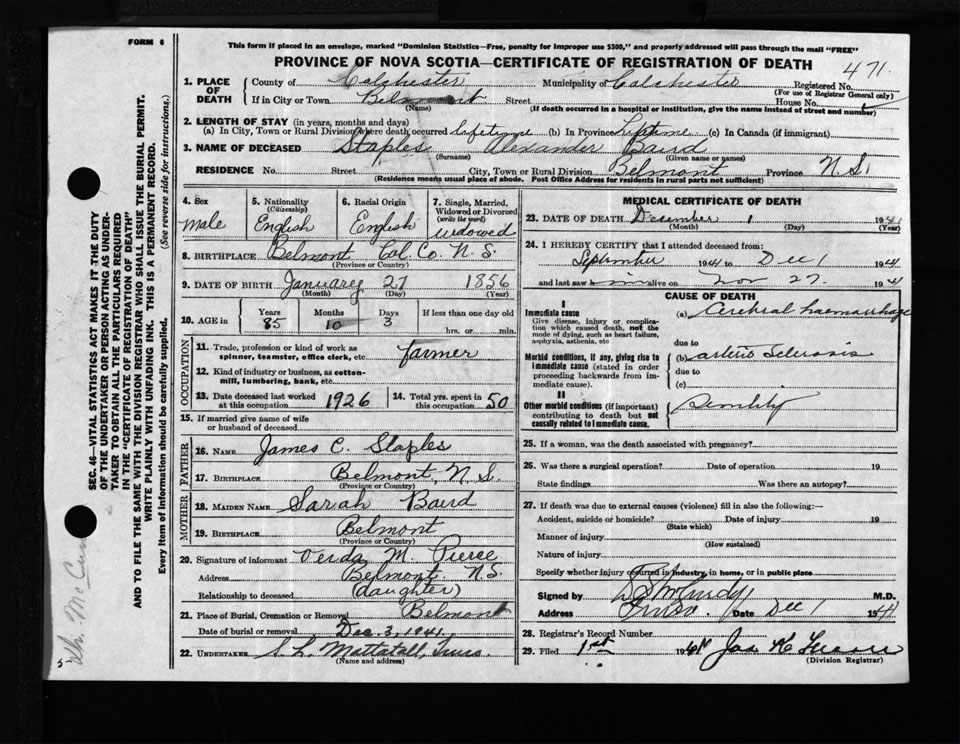 FORM 6
This form if placed in an envelope, marked "Dominion Statistics—Free, penalty for improper use $300," and properly addressed will pass through the mail "FREE"
PROVINCE OF NOVA SCOTIA—CERTIFICATE OF REGISTRATION OF DEATH
471.
1. PLACE OF DEATH
County of Colchester Municipality of Colchester Registered No.
(For use of Registrar General only)
If in City or Town Belmont Street House No.
(Name) (If death occurred in a hospital or institution, give the name instead of street and number)
2. LENGTH OF STAY (in years, months and days)
(a) In City, Town or Rural Division where death occurred lifetime (b) In Province Lifetime (c) In Canada (if immigrant)
3. NAME OF DECEASED Staples Alexander Baird
(Surname) (Given name or names)
RESIDENCE No. Street City, Town or Rural Division Belmont Province N.S.
(Residence means usual place of abode. Post Office Address for residents in rural parts not sufficient)
4. Sex male
5. Nationality (Citizenship) English
6. Racial Origin English
7. Single, Married, Widowed or Divorced (write the word) widowed
8. BIRTHPLACE Belmont Col. Co. N.S.
(Province or Country)
9. DATE OF BIRTH January 27 1856
(Month) (Day) (Year)
10. AGE in Years 85 Months 10 Days 3 If less than one day old hrs. or min.
OCCUPATION
11. Trade, profession or kind of work as spinner, teamster, office clerk, etc. farmer
12. Kind of industry or business, as cotton-mill, lumbering, bank, etc.
13. Date deceased last worked at this occupation 1926
14. Total yrs. spent in this occupation 50
15. If married give name of wife or husband of deceased
FATHER
16. NAME James C. Staples
17. BIRTHPLACE Belmont, N.S.
(Province or Country)
MOTHER
18. MAIDEN NAME Sarah Baird
19. BIRTHPLACE Belmont
(Province or Country)
20. Signature of informant Verda M. Pierce
Address Belmont N.S.
Relationship to deceased (daughter)
21. Place of Burial, Cremation or Removal Belmont
Date of burial or removal Dec. 3, 1941.
22. UNDERTAKER S. L. Mattatall,
(Name and address)
MEDICAL CERTIFICATE OF DEATH
23. DATE OF DEATH December 1 1941
(Month) (Day) (Year)
24. I HEREBY CERTIFY that I attended deceased from:
September 1941 to Dec 1 1941
and last saw h im alive on Nov 27 1941
CAUSE OF DEATH
I
Immediate cause
Give disease, injury or complication which caused death, not the mode of dying, such as heart failure, asphyxia, asthenia, etc
(a) Cerebral haemorrhage
due to
Morbid conditions, if any, giving rise to immediate cause (stated in order proceeding backwards from immediate cause).
(b) arterio Sclerosis
due to
(c)
II
Other morbid conditions (if important) contributing to death but not causally related to immediate cause.
Senility
25. If a woman, was the death associated with pregnancy?
26. Was there a surgical operation? Date of operation 19
State findings Was there an autopsy?
27. If death was due to external causes (violence) fill in also the following:—
Accident, suicide or homicide? Date of injury 19
(State which)
Manner of injury
(How sustained)
Nature of injury
Specify whether injury occurred in industry, in home, or in public place
Signed by M.D.
Address Truro. Date Dec 1 1941
28. Registrar's Record Number
29. Filed 1st 1941
(Division Registrar)
SEC. 46—VITAL STATISTICS ACT MAKES IT THE DUTY
OF THE UNDERTAKER OR PERSON ACTING AS UNDER-
TAKER TO OBTAIN ALL THE PARTICULARS REQUIRED
IN THE "CERTIFICATE OF REGISTRATION OF DEATH"
AND TO FILE THE SAME WITH THE DIVISION REGISTRAR WHO SHALL ISSUE THE BURIAL PERMIT.
WRITE PLAINLY WITH UNFADING INK. THIS IS A PERMANENT RECORD.
Every item of information should be carefully supplied. (See reverse side for instructions.)